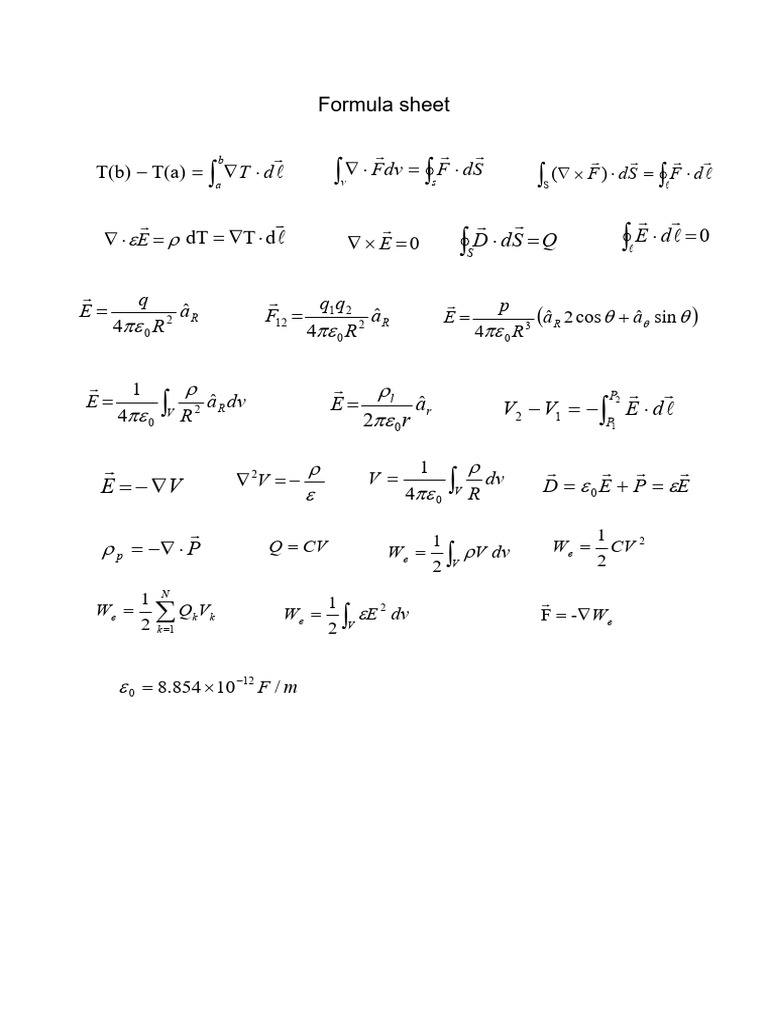 Formula sheet
T(b) − T(a) = ∫_a^b ∇T · dℓ⃗    ∫_v ∇ · F⃗dv = ∮_s F⃗ · dS⃗    ∫_S (∇ × F⃗) · dS⃗ = ∮_ℓ F⃗ · dℓ⃗
∇ · εE⃗ = ρ dT = ∇T · dℓ̄    ∇ × E⃗ = 0    ∮_S D⃗ · dS⃗ = Q    ∮_ℓ E⃗ · dℓ⃗ = 0
E⃗ = q / (4πε₀R²) â_R    F⃗₁₂ = q₁q₂ / (4πε₀R²) â_R    E⃗ = p / (4πε₀R³) (â_R 2 cos θ + â_θ sin θ)
E⃗ = 1 / (4πε₀) ∫_V ρ / R² â_R dv    E⃗ = ρ_l / (2πε₀r) â_r    V₂ − V₁ = −∫_{P₁}^{P₂} E⃗ · dℓ⃗
E⃗ = −∇V    ∇²V = − ρ / ε    V = 1 / (4πε₀) ∫_V ρ / R dv    D⃗ = ε₀E⃗ + P⃗ = εE⃗
ρ_p = −∇ · P⃗    Q = CV    W_e = 1/2 ∫_V ρV dv    W_e = 1/2 CV²
W_e = 1/2 ∑_{k=1}^N Q_k V_k    W_e = 1/2 ∫_V εE² dv    F⃗ = -∇W_e
ε₀ = 8.854 × 10⁻¹² F / m